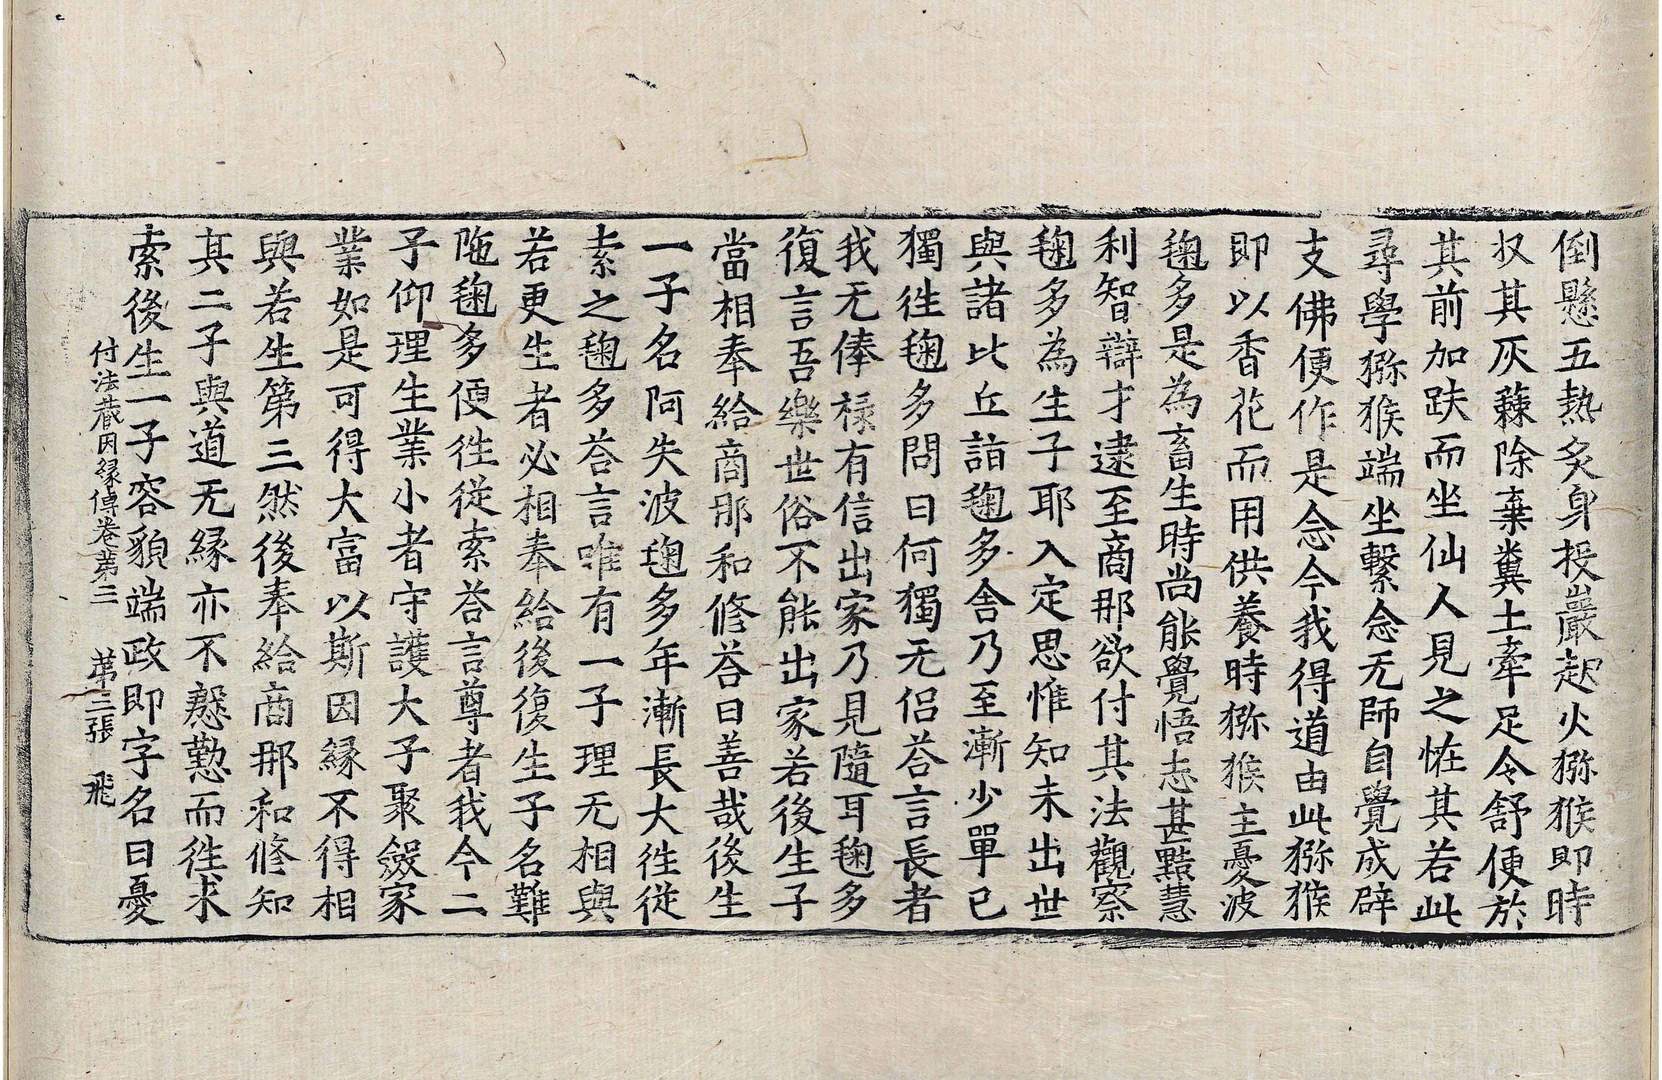 倒懸五熱炙身投巖赴火猕猴即時
収其灰蕀除棄糞土牽足令舒便於
其前加趺而坐仙人見之恠其若此
尋學猕猴端坐繫念无師自覺成辟
支佛便作是念今我得道由此猕猴
即以香花而用供養時猕猴主憂波
毱多是為畜生時尚能覺悟志甚黠慧
利智辯才逮至商那欲付其法觀察
毱多為生子耶入定思惟知未出世
與諸比丘詣毱多舍乃至漸少單已
獨往毱多問曰何獨无侣荅言長者
我无俸禄有信出家乃見隨耳毱多
復言吾樂世俗不能出家若後生子
當相奉給商那和修荅曰善哉後生
一子名阿失波毱多年漸長大往従
索之毱多荅言唯有一子理无相與
若更生者必相奉給後復生子名難
陁毱多便往従索荅言尊者我今二
子仰理生業小者守護大子聚斂家
業如是可得大富以斯因縁不得相
與若生第三然後奉給商那和修知
其二子與道无縁亦不慇懃而往求
索後生一子容貌端政即字名曰憂
付法蔵因縁傳卷第三　第三張　飛